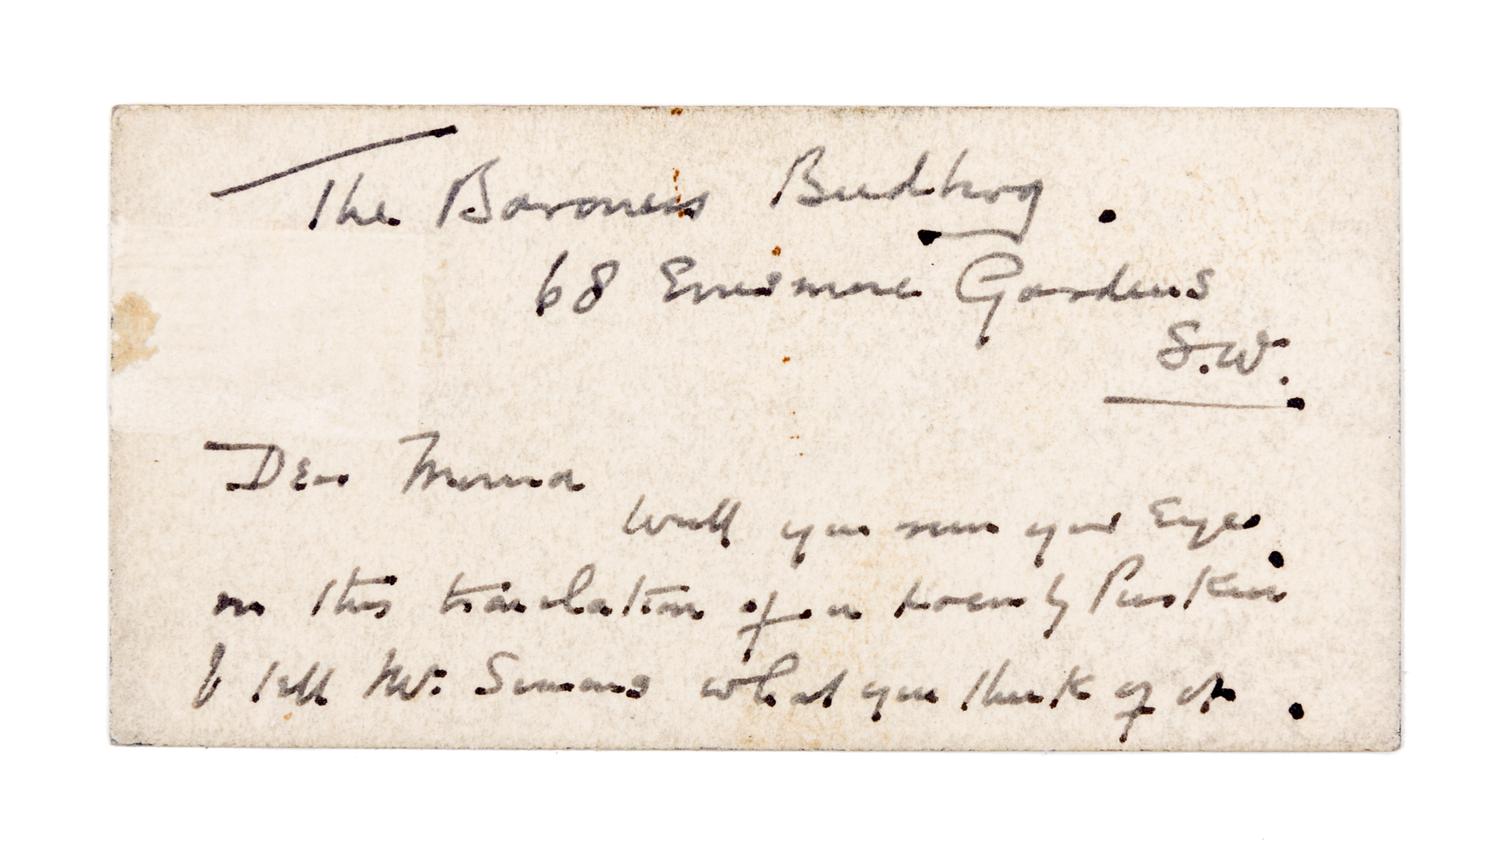 The Baroness Budberg.
68 Ennismore Gardens
S.W.
Dear Moura
Will you run your Eyes
on this translation of a poem by Puskin
& tell Mr. Simmons what you think of it.